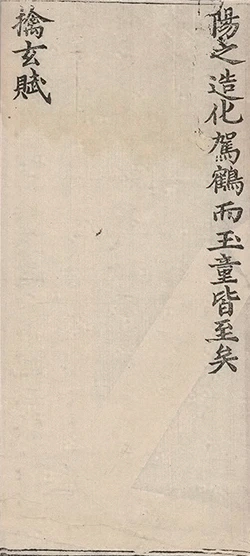 陽之造化駕鶴而玉童皆至矣
擒玄賦